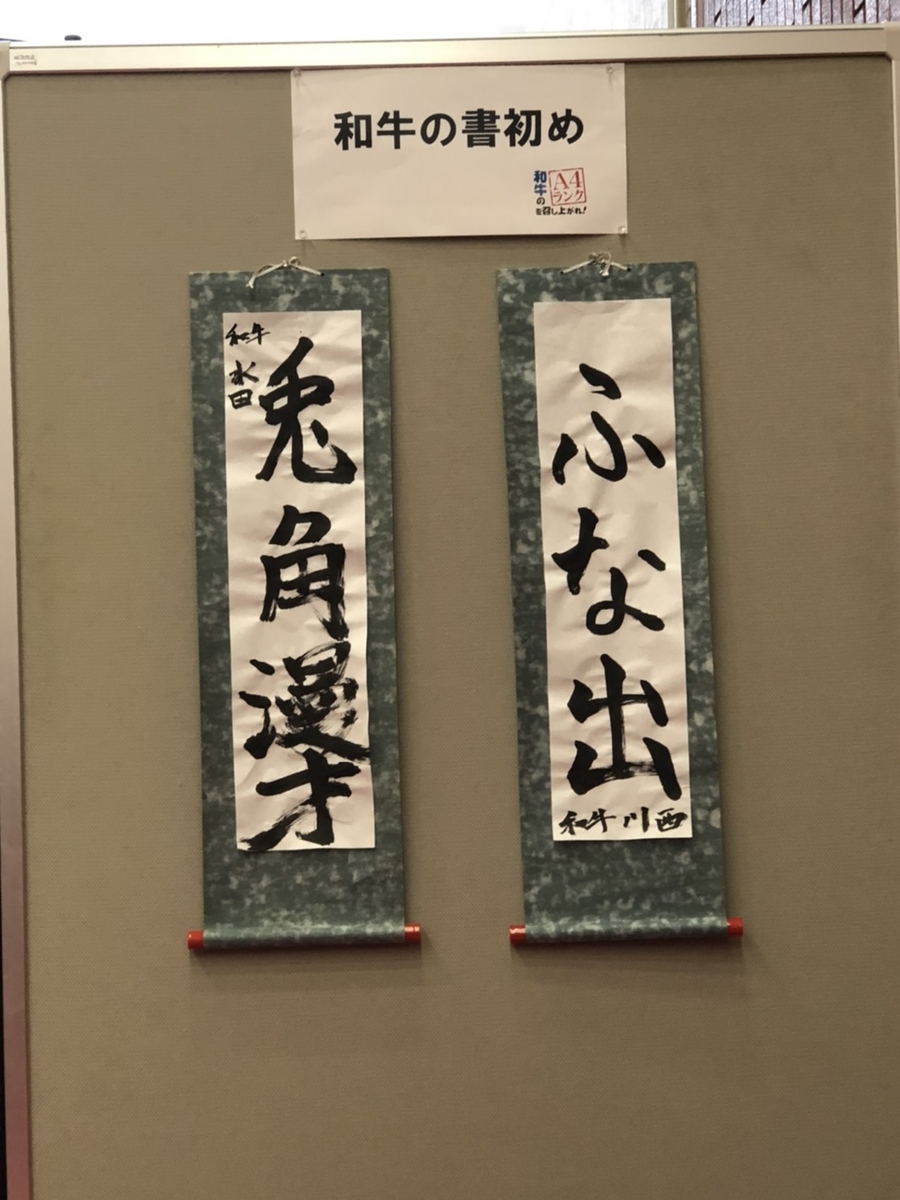 和牛の書初め
和牛の
A4
ランク
を召し上がれ!
ふな出
和牛 川西
兎角漫才
和牛
水田